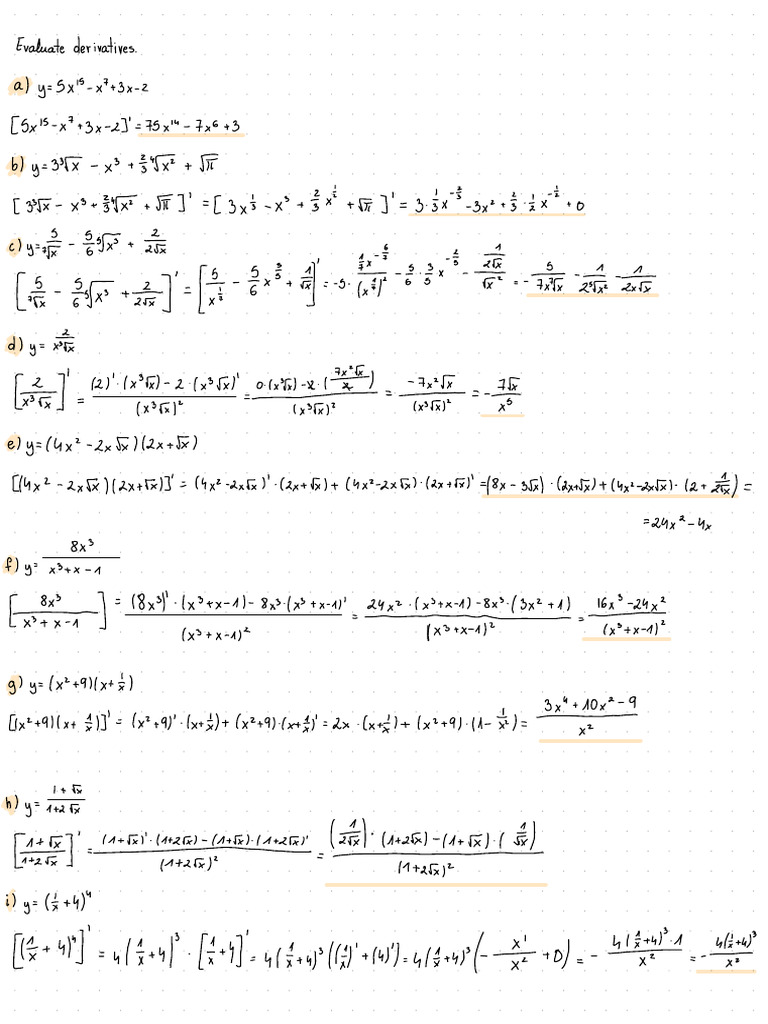 Evaluate derivatives.
a) y=5x¹⁵-x⁷+3x-2
[5x¹⁵-x⁷+3x-2]' = 75x¹⁴-7x⁶+3
b) y=3∛x - x³ + 2/3 ⁴√x² + √π
[3∛x - x³ + 2/3 ⁴√x² + √π]' = [3x^(1/3) - x³ + 2/3 x^(1/2) + √π]' = 3·1/3 x^(-2/3) - 3x² + 2/3·1/2 x^(-1/2) + 0
c) y= 5/⁷√x - 5/6 ⁵√x³ + 2/(2√x)
[5/⁷√x - 5/6 ⁵√x³ + 2/(2√x)]' = [5/x^(1/7) - 5/6 x^(3/5) + 1/√x]' = -5·(1/7 x^(-6/7))/(x^(1/7))² - 5/6·3/5 x^(-2/5) - (1/(2√x))/√x² = -5/(7x⁷√x) - 1/(2⁵√x²) - 1/(2x√x)
d) y= 2/(x³√x)
[2/(x³√x)]' = ((2)'·(x³√x)-2·(x³√x)')/(x³√x)² = (0·(x³√x)-2·(7x²√x/2))/(x³√x)² = (-7x²√x)/(x³√x)² = -7√x/x⁵
e) y=(4x²-2x√x)(2x+√x)
[(4x²-2x√x)(2x+√x)]' = (4x²-2x√x)'·(2x+√x)+(4x²-2x√x)·(2x+√x)' = (8x-3√x)·(2x+√x)+(4x²-2x√x)·(2+1/(2√x)) =
= 24x²-4x
f) y= 8x³/(x³+x-1)
[8x³/(x³+x-1)] = ((8x³)'·(x³+x-1)-8x³·(x³+x-1)')/(x³+x-1)² = (24x²·(x³+x-1)-8x³·(3x²+1))/(x³+x-1)² = (16x³-24x²)/(x³+x-1)²
g) y=(x²+9)(x+1/x)
[(x²+9)(x+1/x)]' = (x²+9)'·(x+1/x)+(x²+9)·(x+1/x)' = 2x·(x+1/x)+(x²+9)·(1-1/x²) = (3x⁴+10x²-9)/x²
h) y= (1+√x)/(1+2√x)
[(1+√x)/(1+2√x)]' = ((1+√x)'·(1+2√x)-(1+√x)·(1+2√x)')/(1+2√x)² = ((1/(2√x))·(1+2√x)-(1+√x)·(1/√x))/(1+2√x)²
i) y=(1/x+4)⁴
[(1/x+4)⁴]' = 4(1/x+4)³·[1/x+4]' = 4(1/x+4)³((1/x)'+(4)') = 4(1/x+4)³(-x'/x²+0) = -4(1/x+4)³·1/x² = -4(1/x+4)³/x²